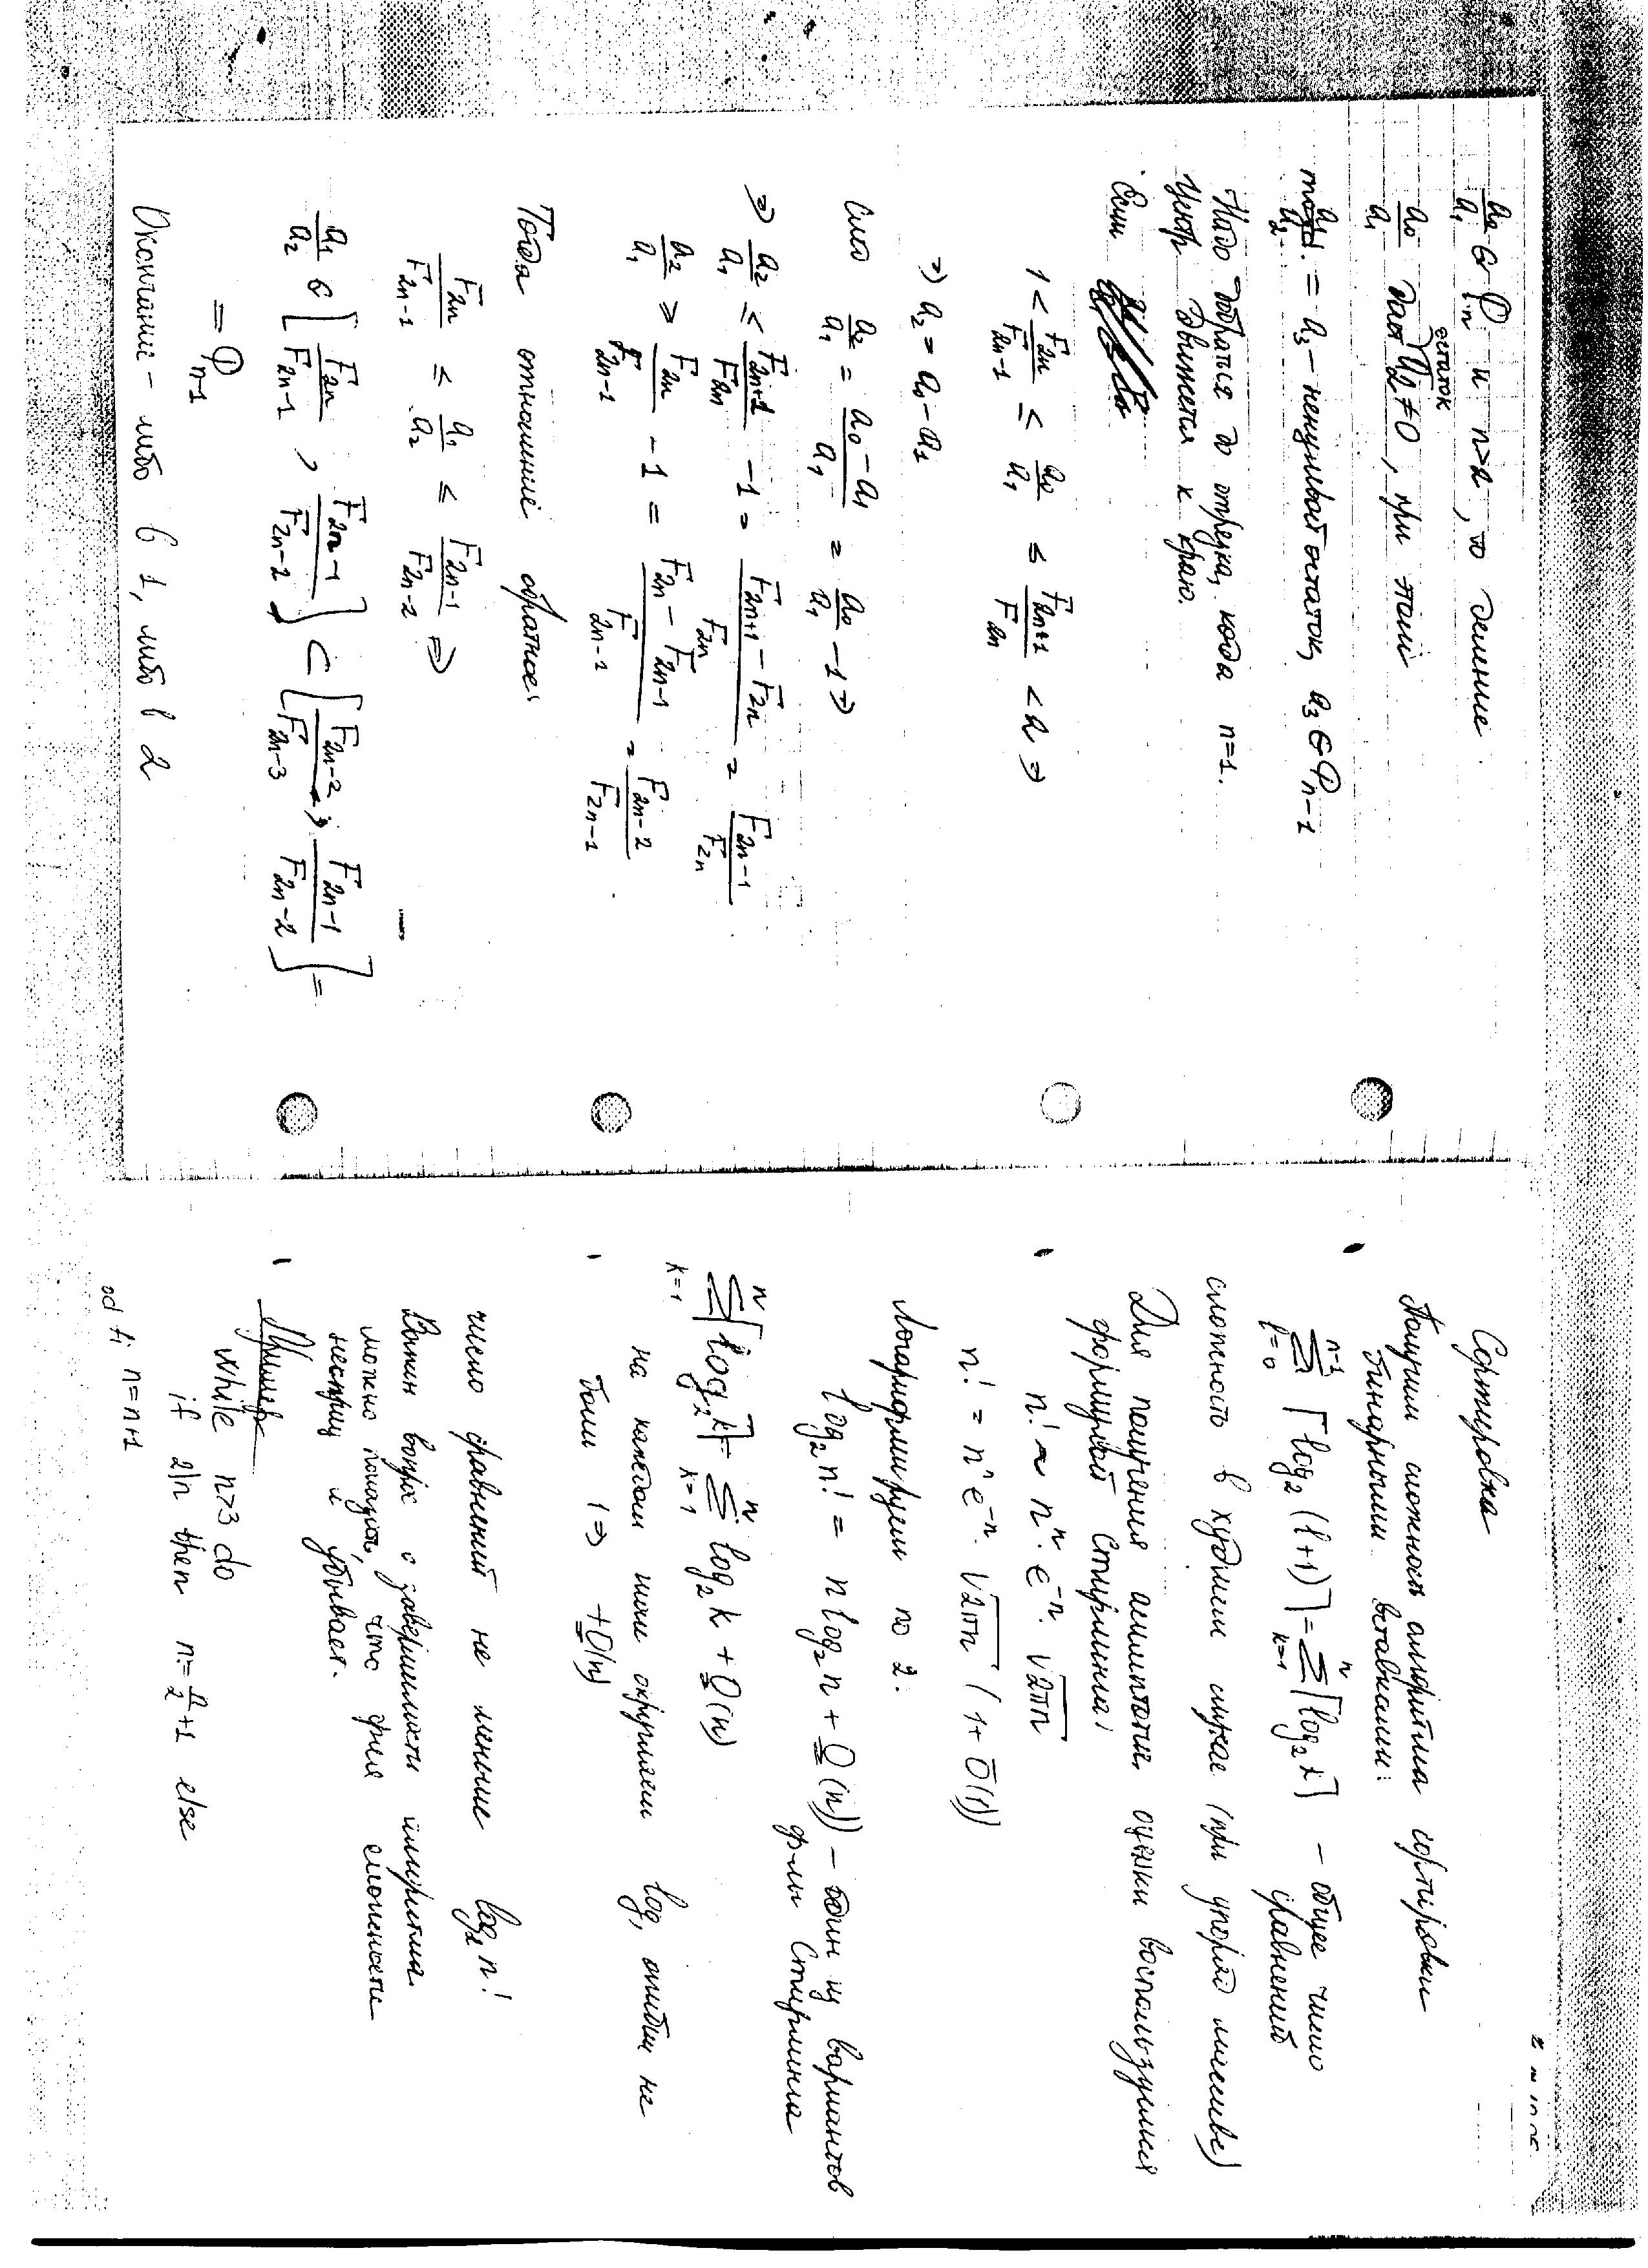 a₀/a₁ ∈ Φₙ и n>2, то деление
a₀/a₁ даёт остаток a₂≠0, при этом
a₁/a₂ = a₃ – ненулевой остаток, a₃ ∈ Φₙ₋₁
Надо добраться до отрезка, когда n=1.
Центр движется к краю.
Если
1 < F₂ₙ/F₂ₙ₋₁ ≤ a₀/a₁ ≤ F₂ₙ₊₁/F₂ₙ < 2 ⇒
⇒ a₂ = a₀ – a₁
a₂/a₁ = (a₀ – a₁)/a₁ = a₀/a₁ – 1 ⇒
⇒ a₂/a₁ ≤ F₂ₙ₊₁/F₂ₙ – 1 = (F₂ₙ₊₁ – F₂ₙ)/F₂ₙ = F₂ₙ₋₁/F₂ₙ
a₂/a₁ ≥ F₂ₙ/F₂ₙ₋₁ – 1 = (F₂ₙ – F₂ₙ₋₁)/F₂ₙ₋₁ = F₂ₙ₋₂/F₂ₙ₋₁
Тогда отношение обратное:
F₂ₙ/F₂ₙ₋₁ ≤ a₁/a₂ ≤ F₂ₙ₋₁/F₂ₙ₋₂ ⇒
a₁/a₂ ∈ [F₂ₙ/F₂ₙ₋₁, F₂ₙ₋₁/F₂ₙ₋₂] ⊂ [F₂ₙ₋₂/F₂ₙ₋₃; F₂ₙ₋₁/F₂ₙ₋₂] =
= Φₙ₋₁
Окончание – либо в 1, либо в 2
Сортировка
Получим сложность алгоритма сортировки
бинарными вставками:
∑_{l=0}^{n-1} ⌈log₂(l+1)⌉ = ∑_{k=1}^{n} ⌈log₂k⌉ – общее число
сравнений
сложность в худшем случае (при упоряд
Для получения асимптотич. оценки воспользуемся
формулой Стирлинга:
n! ~ nⁿ · e⁻ⁿ · √2πn
n! = nⁿ e⁻ⁿ · √2πn (1 + ō(1))
Логарифмируем по 2.
log₂n! = n log₂n + O(n)) – один из вариантов
ф-лы Стирлинга
∑_{k=1}^{n} ⌈log₂k⌉ = ∑_{k=1}^{n} log₂k + O(n)
на каждом шаге округляем log, ошибка не
более 1 ⇒ + O(n)
число сравнений не меньше log₂n!
Важен вопрос о завершимости алгоритма.
можно показать, что ф-ия сложности
неотриц и убывает.
Пример
While n>3 do
if 2|n then n:= n/2 + 1 else
od fi n=n+1